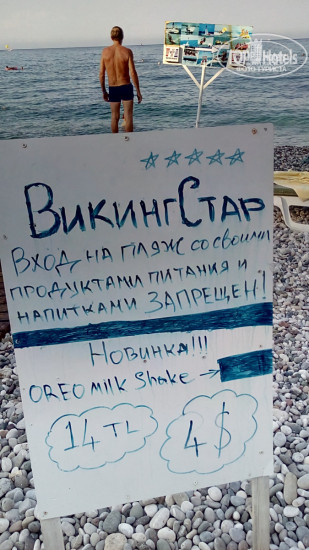 TopHotels
ВикингСтар
Вход на пляж со своими
продуктами питания и
напитками ЗАПРЕЩЕН!
Новинка!!!
OREO Milk Shake →
14 TL
4 $